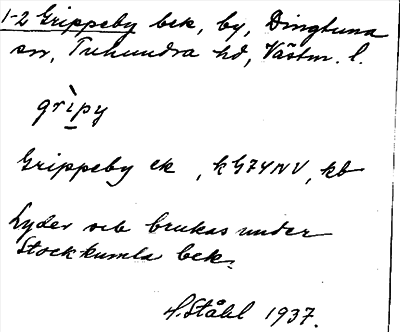 1-2 Grippeby bek, by, Dingtuna
sn, Tuhundra hd, Västm. l.
grìpy
Grippeby ek , k G74NV, kb
Lyder och brukas under
Stockkumla bek.
H. Ståhl 1937.